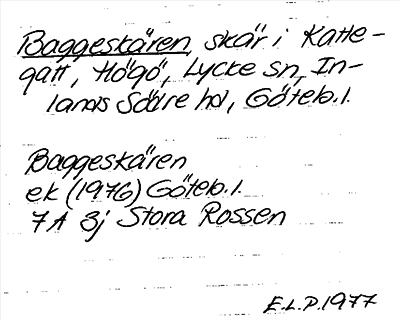 Baggeskären, skär i Katte-
gatt, Högö, Lycke sn, In-
lands Södre hd, Göteb. l.
Baggeskären
ek (1976) Göteb. l.
7A 3j Stora Rossen
E.L.P. 1977